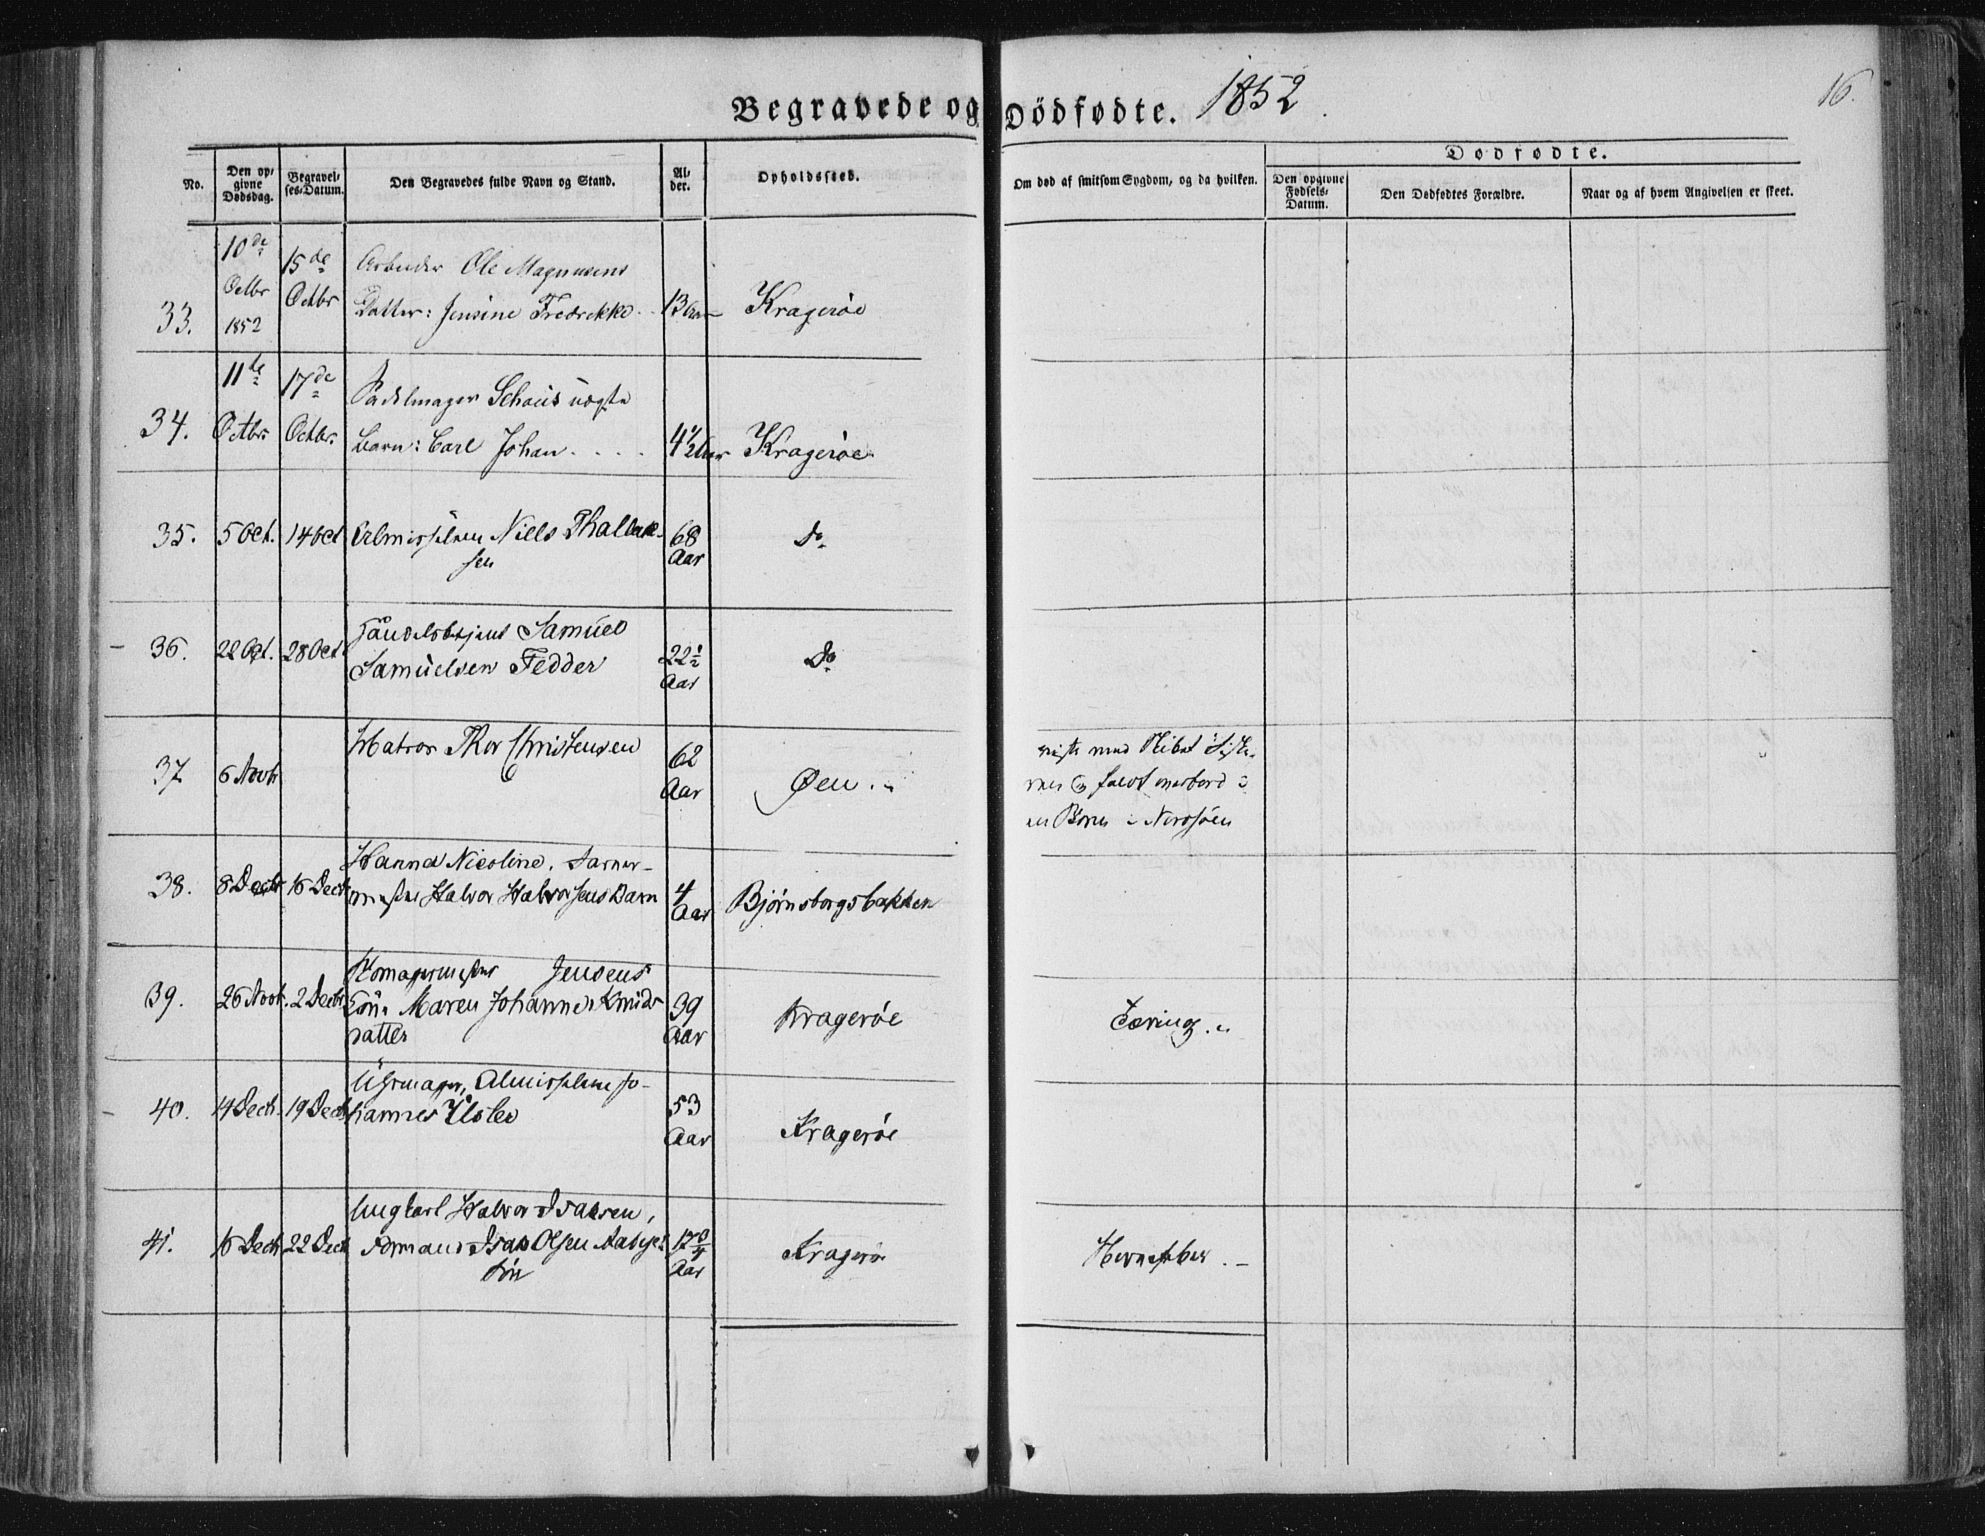 Begravede og Dödfødte. 1852
16.
No.
Den op-
givne
Dødsdag.
Begravel-
ses-Datum.
Den Begravedes fulde Navn og Stand.
Al-
der.
Opholdssted.
Om død af smitsom Sygdom, og da hvilken.
Dødfødte.
Den opgivne
Fødsels-
Datum.
Den Dødfødtes Forældre.
Naar og af hvem Angivelsen er skeet.
33.
10de
Octbr
1852
15de
Octbr
Arbeider Ole Magnusens
Datter: Jensine Fredrekke
13 Aar
Kragerøe
34.
11te
Octbr
17de
Octbr.
Sadelmager Schous uægte
Barn: Carl Johan . . . .
4 1/2 Aar
Kragerøe
35.
5 Oct.
14 Oct
Almisselem Niels Thallak-
sen
68
Aar
Do
36.
22 Oct.
28 Oct
Handelsbetjent Samuel
Samuelsen Fedder
22 1/2
Aar
Do
37
6 Novbr
Matros Thor Christensen
62
Aar
Øen
faldt overbord
Nordsöen
38.
8 Decbr
16 Decbr
Hanna Nicoline, Garver-
mester Halvor Halvorsens Barn
4
Aar
Bjørnsborgsbakken
39.
26 Novbr.
2 Decbr
Skomagermester Jensens
Kone Maren Johanne Knuds-
datter
39
Aar
Kragerøe
Tæring
40.
14 Decbr.
19 Decbr
Uhrmager, Almisselem Jo-
hannes
53
Aar
Kragerøe
41.
16 Decbr
22 Decbr
Ungkarl Halvor Isaksen,
Formand Isak Olsen
Søn
17 3/4
Aar
Kragerøe
Nervefeber